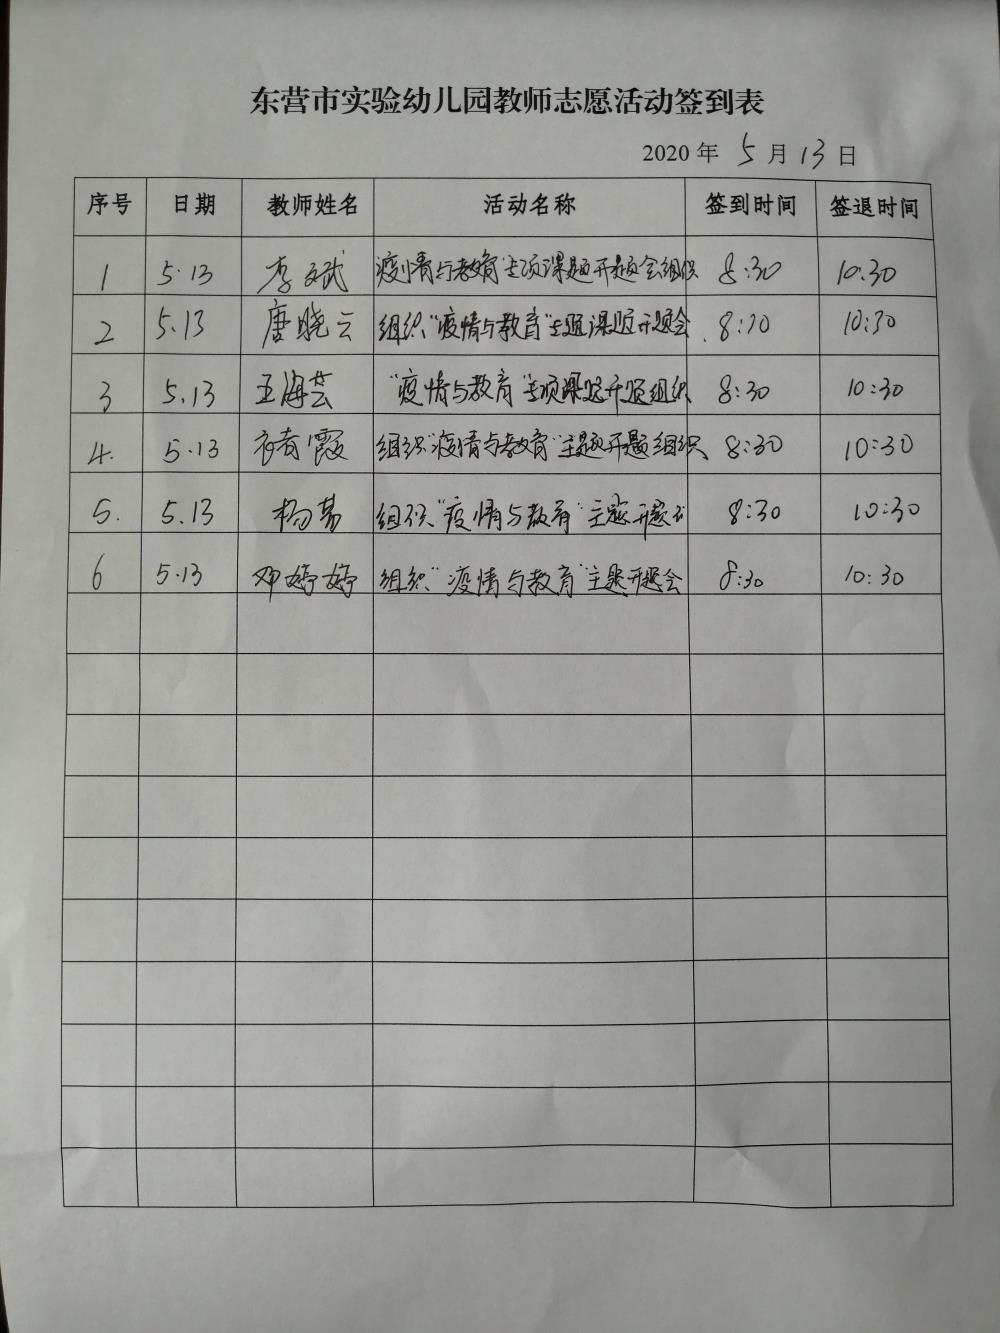 东营市实验幼儿园教师志愿活动签到表
2020 年 5 月 13 日
序号 日期 教师姓名 活动名称 签到时间 签退时间
1 5.13 李斌 疫情与教育"专项课题开题会组织 8:30 10:30
2 5.13 唐晓云 组织"疫情与教育"主题课题开题会 8:30 10:30
3 5.13 王海芸 "疫情与教育"专项课题开题组织 8:30 10:30
4. 5.13 霞 组织"疫情与教育"主题开题组织 8:30 10:30
5. 5.13 杨 组织"疫情与教育"主题开题 8:30 10:30
6 5.13 邓婷婷 组织"疫情与教育"主题开题会 8:30 10:30